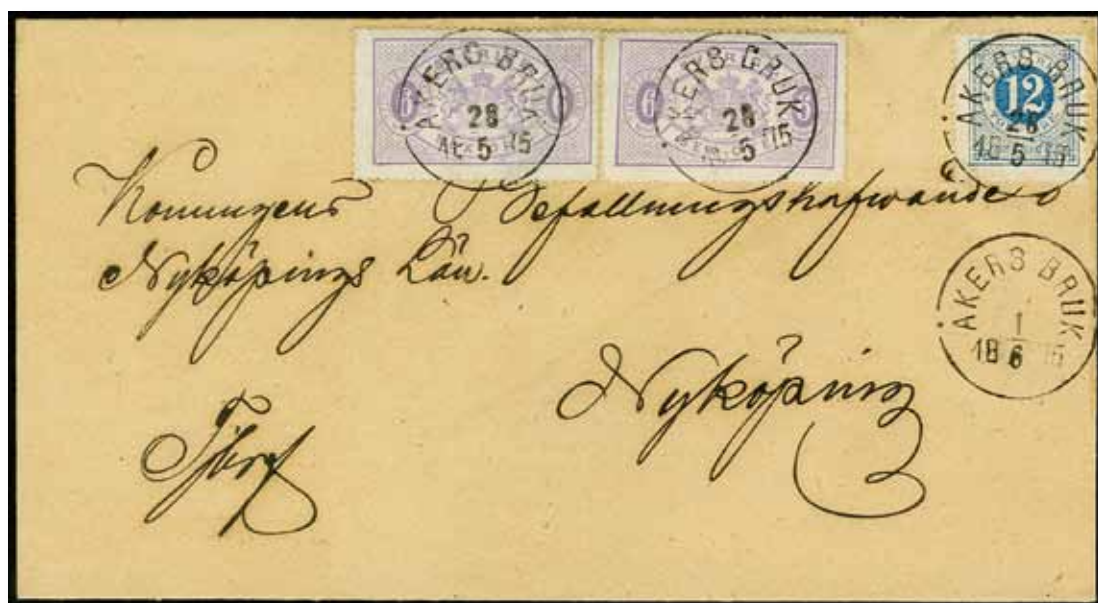 ÅKERS BRUK
28
5 75
ÅKERS BRUK
28
5 75
12
ÅKERS BRUK
28
18 5 75
Konungens Befallningshafwande
Nyköpings Län.
ÅKERS BRUK
1
18 6 75
Nyköping
Tjbref